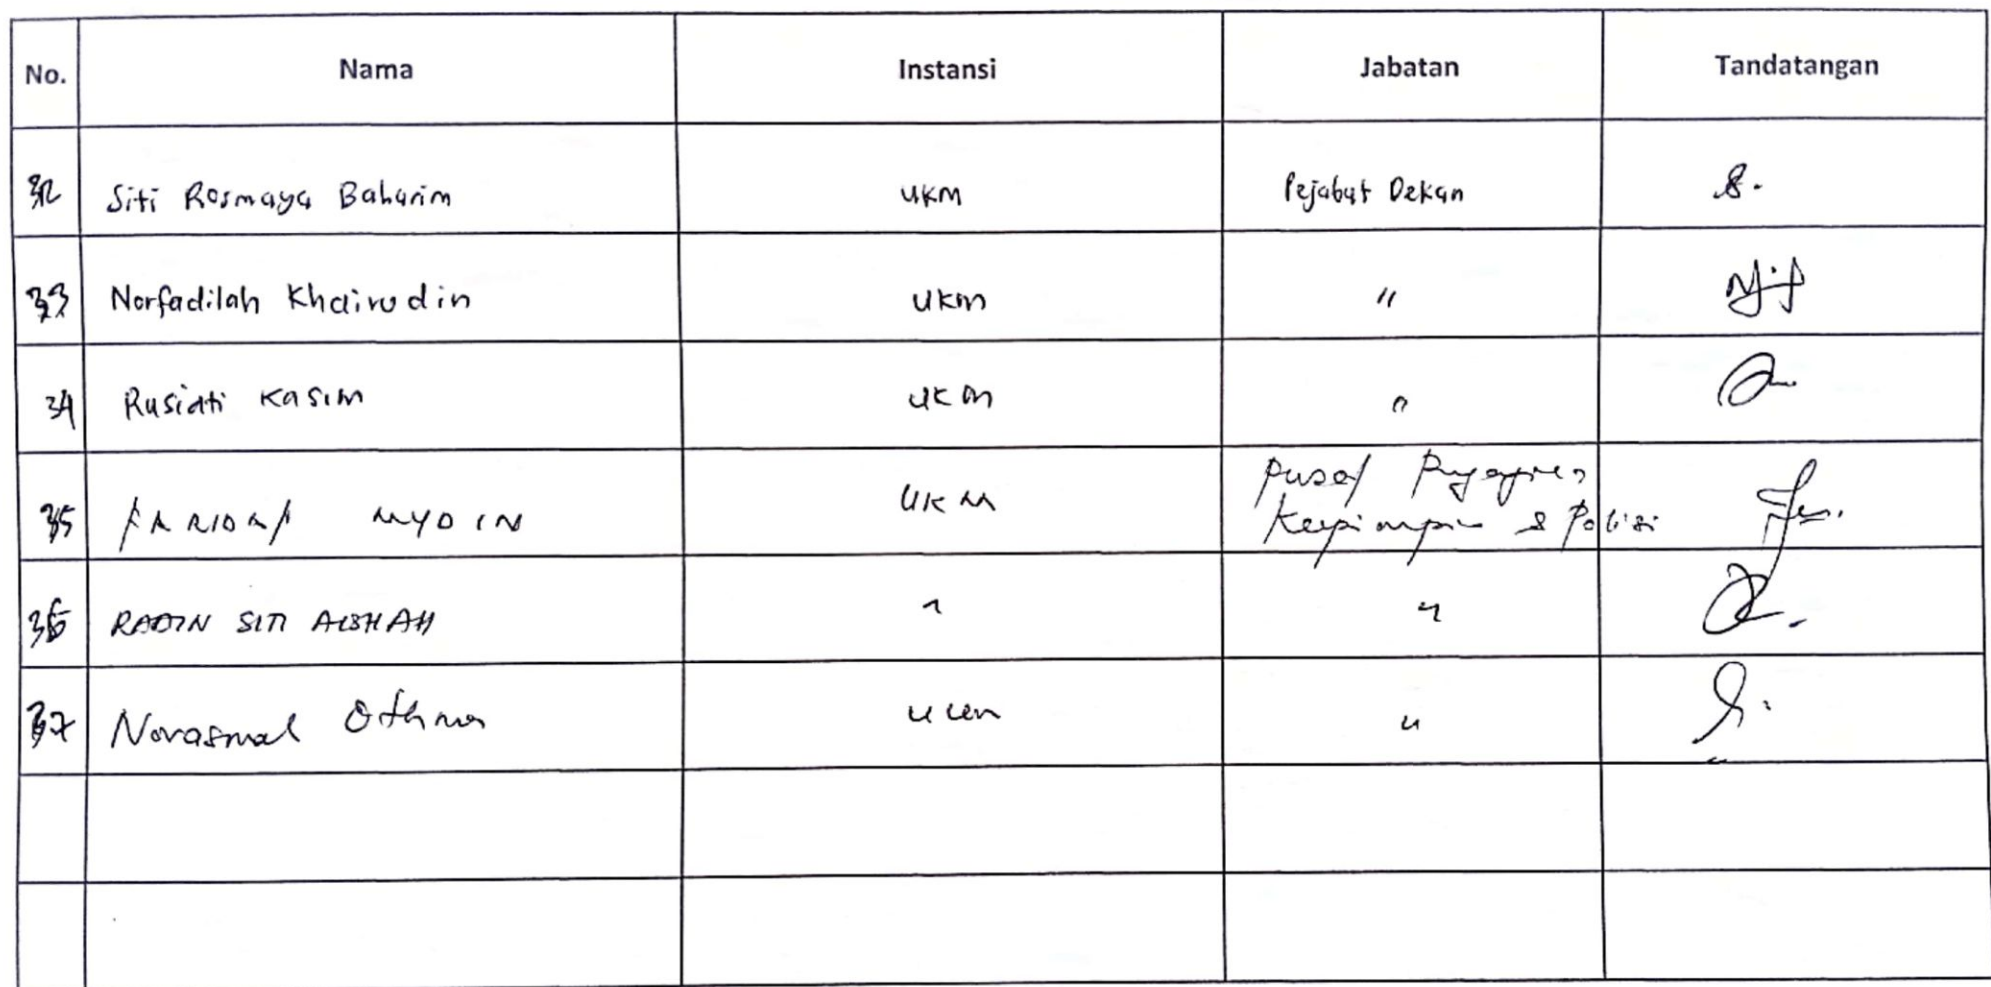 No. Nama Instansi Jabatan Tandatangan
32 Siti Rosmaya Baharim UKM Pejabat Dekan
33 Norfadilah Khairudin UKM "
34 Rusiati Kasim UKM "
35 FARIDAH MYDIN UKM Pusat
& Polisi
36 RADIN SITI AISHAH " "
37 Norasmah Othman UKM "